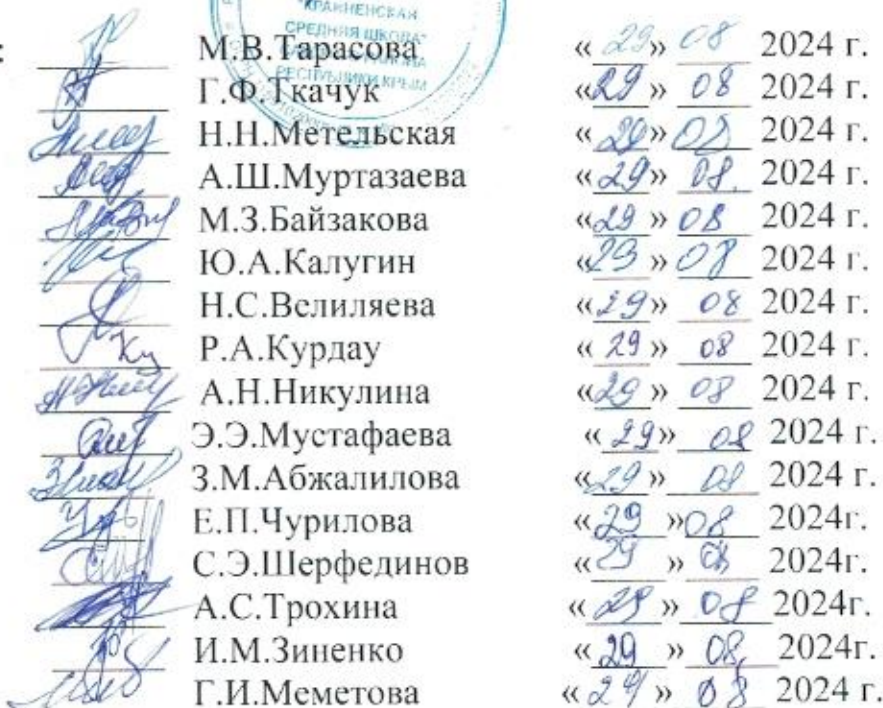 КРАЙНЕНСКАЯ
СРЕДНЯЯ ШКОЛА"
РЕСПУБЛИКИ КРЫМ
М.В.Тарасова « 29» 08 2024 г.
Г.Ф.Ткачук «29 » 08 2024 г.
Н.Н.Метельская « 29» 08 2024 г.
А.Ш.Муртазаева «29» 08. 2024 г.
М.З.Байзакова «29 » 08 2024 г.
Ю.А.Калугин «29 » 08 2024 г.
Н.С.Велиляева «29» 08 2024 г.
Ку Р.А.Курдау « 29 » 08 2024 г.
А.Н.Никулина «29 » 08 2024 г.
Э.Э.Мустафаева « 29» 08 2024 г.
З.М.Абжалилова «29 » 08 2024 г.
Е.П.Чурилова «29 »08 2024г.
С.Э.Шерфединов «29 » 08 2024г.
А.С.Трохина « 29 » 08 2024г.
И.М.Зиненко « 29 » 08, 2024г.
Г.И.Меметова « 29 » 08 2024 г.